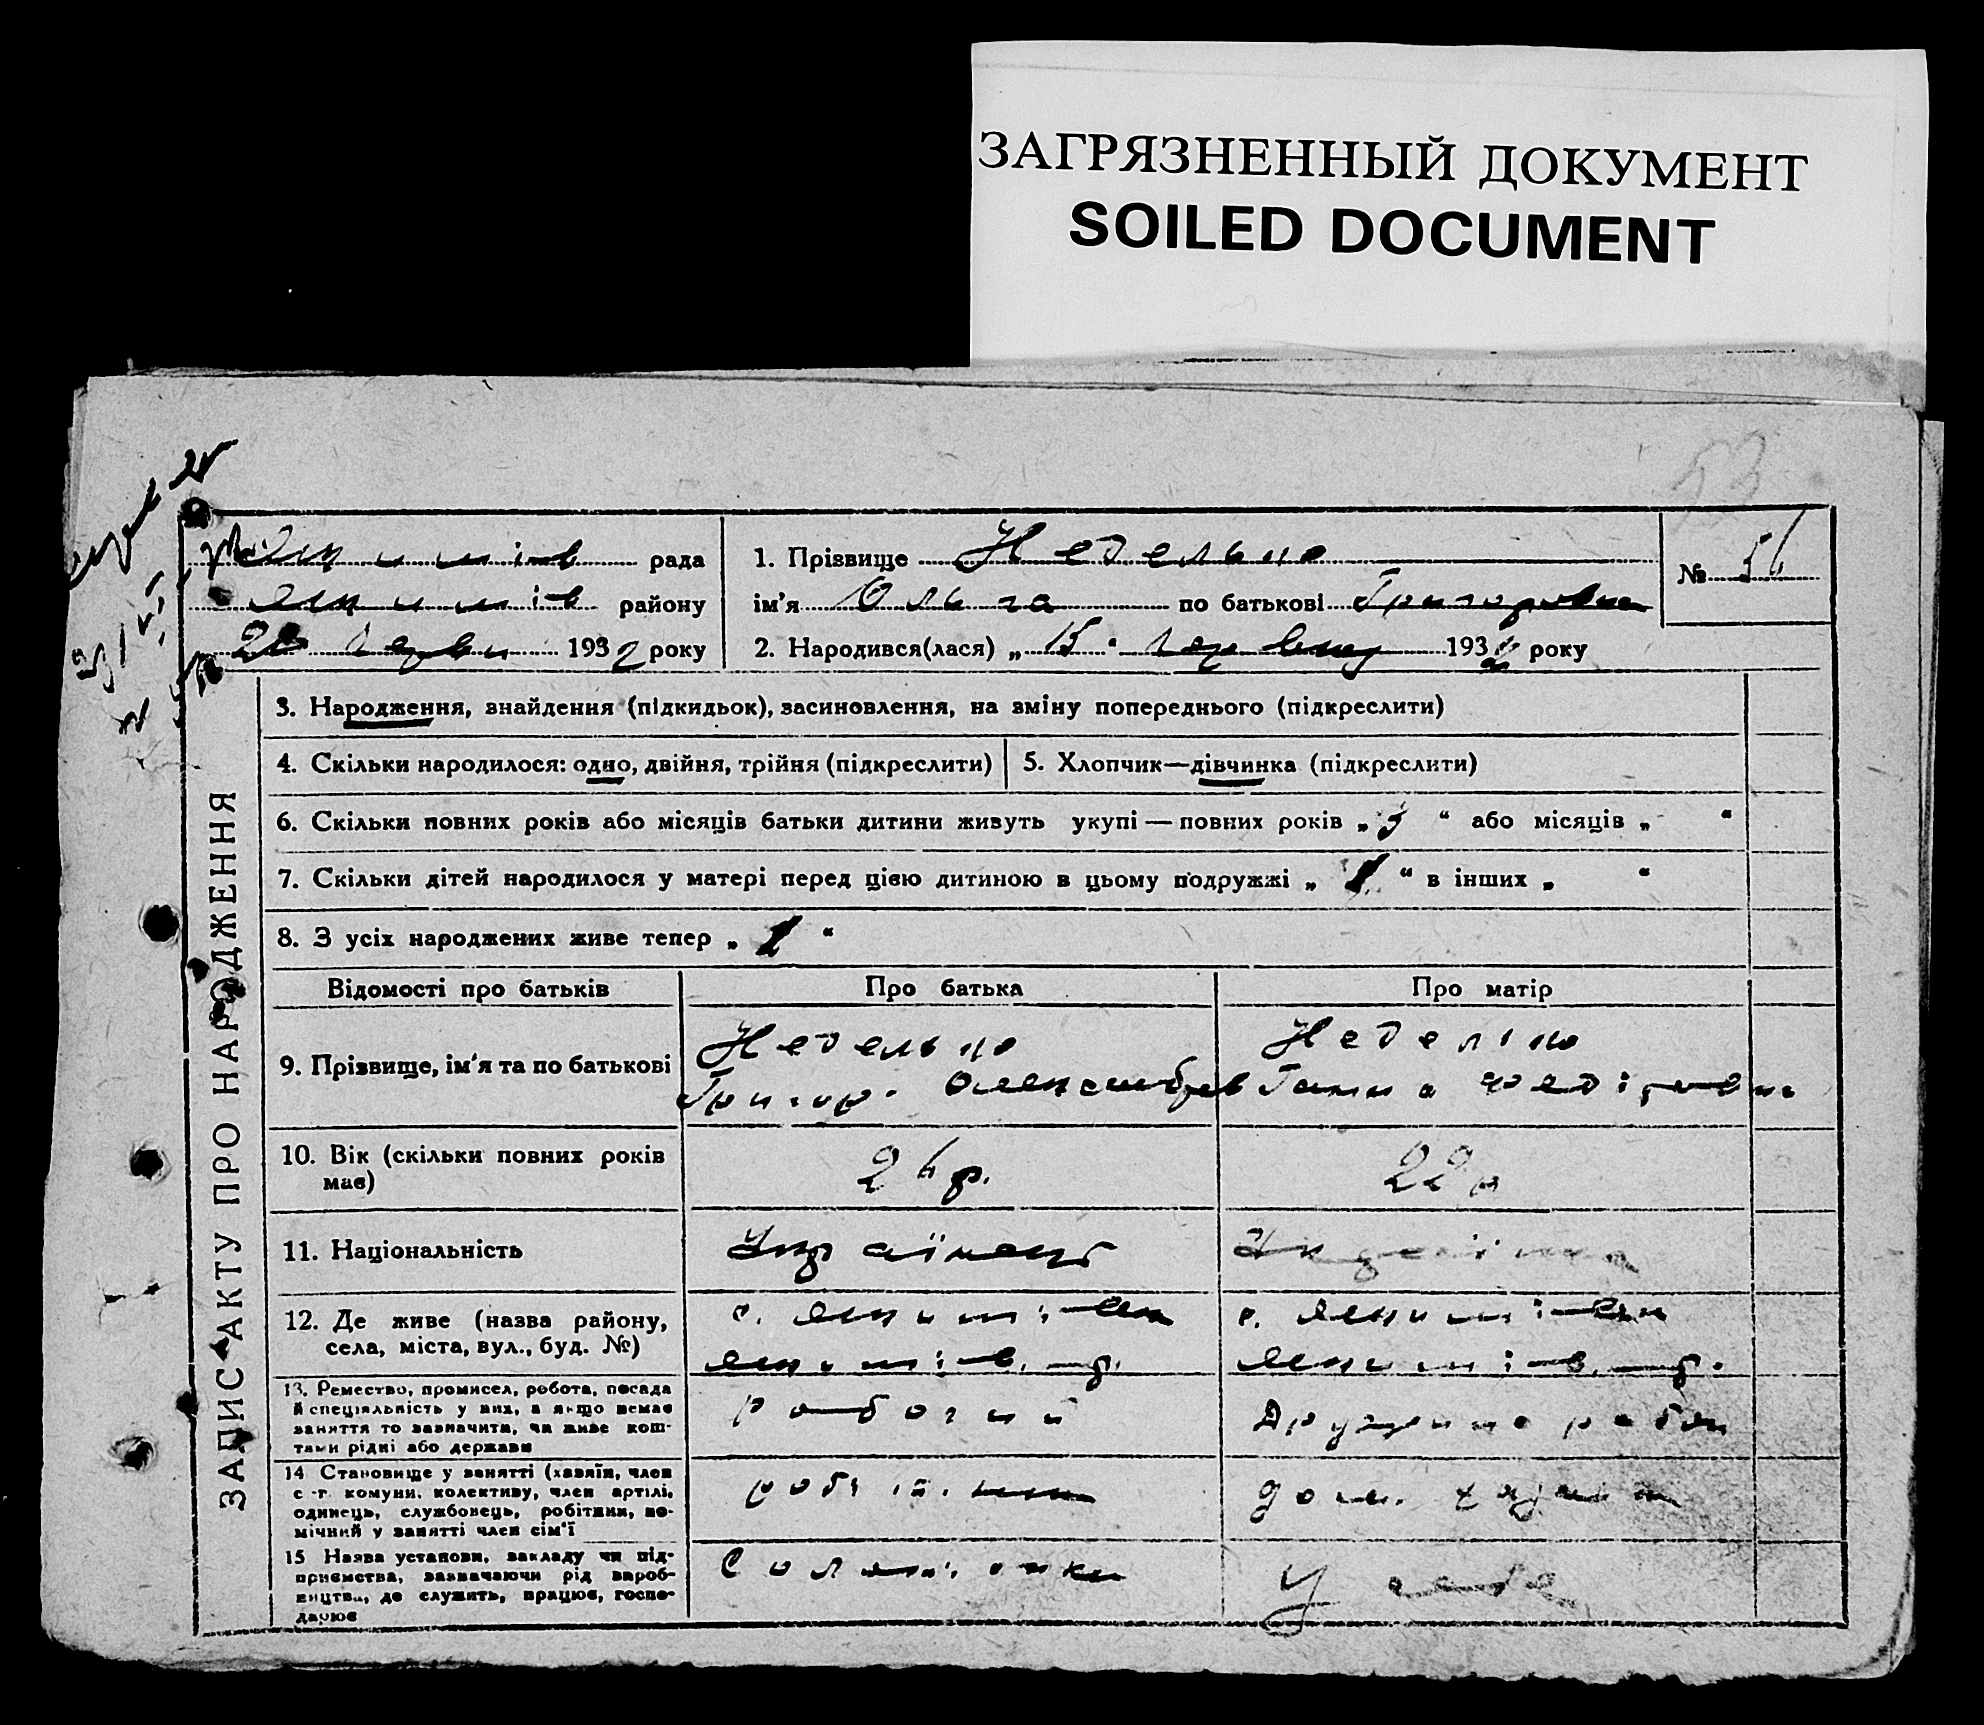 ЗАГРЯЗНЕННЫЙ ДОКУМЕНТ
SOILED DOCUMENT
53
рада
району
193 2 року
1. Прізвище Неделько
ім'я Ольга по батькові Григоровна
2. Народився(лася) „ 15 “ 193 2 року
№ 56
ЗАПИС АКТУ ПРО НАРОДЖЕННЯ
3. Народження, знайдення (підкидьок), засиновлення, на зміну попереднього (підкреслити)
4. Скільки народилося: одно, двійня, трійня (підкреслити)
5. Хлопчик—дівчинка (підкреслити)
6. Скільки повних років або місяців батьки дитини живуть укупі — повних років „ “ або місяців „ “
7. Скільки дітей народилося у матері перед цією дитиною в цьому подружжі „ 1 “ в інших „ “
8. З усіх народжених живе тепер „ “
Відомості про батьків
Про батька
Про матір
9. Прізвище, ім'я та по батькові
Неделько
Григор.
Неделько
Ганна Федоровна
10. Вік (скільки повних років має)
26 р.
22 р
11. Національність
Українец
Українка
12. Де живе (назва району,
села, міста, вул., буд. №)
с. Якимівка
Якимів. р.
с. Якимівка
Якимів. р.
13. Ремество, промисел, робота, посада
й спеціяльність у них, а якщо немає
заняття то зазначити, чи живе кош-
тами рідні або держави
рабочий
14 Становище у занятті (хазяїн, член
с.-г. комуни, колективу, член артілі,
одинець, службовець, робітник, по-
мічний у занятті член сім'ї
робітник
дом. хазяйка
15 Назва установи, закладу чи під-
приємства, зазначаючи рід вироб-
ництва, де служить, працює, госпо-
дарює
У себе